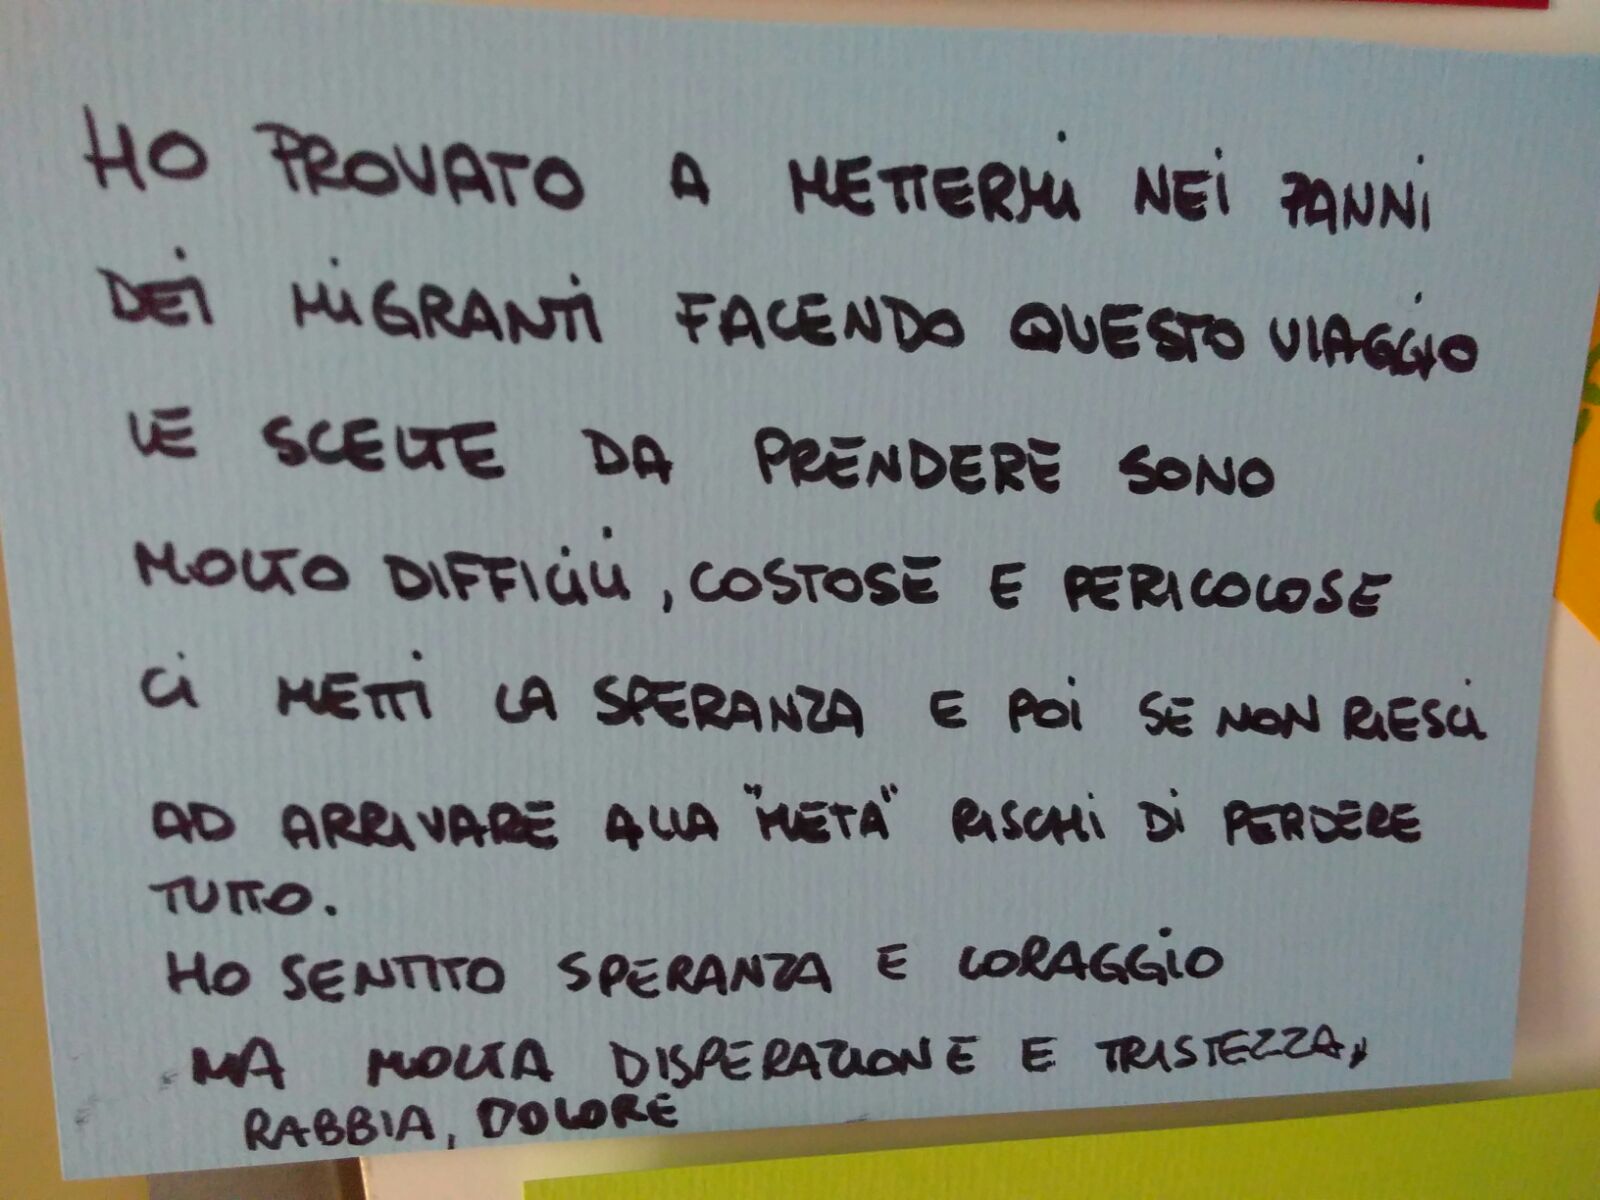 HO PROVATO A METTERMI NEI PANNI
DEI MIGRANTI FACENDO QUESTO VIAGGIO
LE SCELTE DA PRENDERE SONO
MOLTO DIFFICILI, COSTOSE E PERICOLOSE
CI METTI LA SPERANZA E POI SE NON RIESCI
AD ARRIVARE ALLA "META" RISCHI DI PERDERE
TUTTO.
HO SENTITO SPERANZA E CORAGGIO
MA MOLTA DISPERAZIONE E TRISTEZZA,
RABBIA, DOLORE